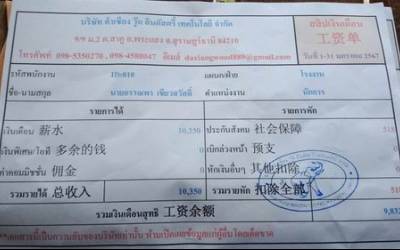 บริษัท ต้าเซียง วู๊ด อินดัสตรี้ เทคโนโลยี จำกัด
สลิปเงินเดือน
9/9 ม.2 ต.สาคู อ.พระแสง จ.สุราษฎร์ธานี 84210
工资单
โทรศัพท์ 098-5350270 , 098-4580047 อีเมล์ daxiangwood889@gmail.com
วันที่ 1-31 มกราคม 2567
รหัสพนักงาน
แผนก/ฝ่าย โรงงาน
ชื่อ-นามสกุล
ตำแหน่งงาน
รายการได้ รายการหัก
เงินเดือน 薪水 10,350 ประกันสังคม 社会保障
เงินพิเศษ/โอที 多余的钱 0 เบิกล่วงหน้า 预支
ค่าคอมมิชชั่น 佣金 0 หักเงินอื่นๆ 其他扣除
รวมรายได้ 总收入 10,350 รวมรายหัก 扣除全部
รวมเงินเดือนสุทธิ 工资余额